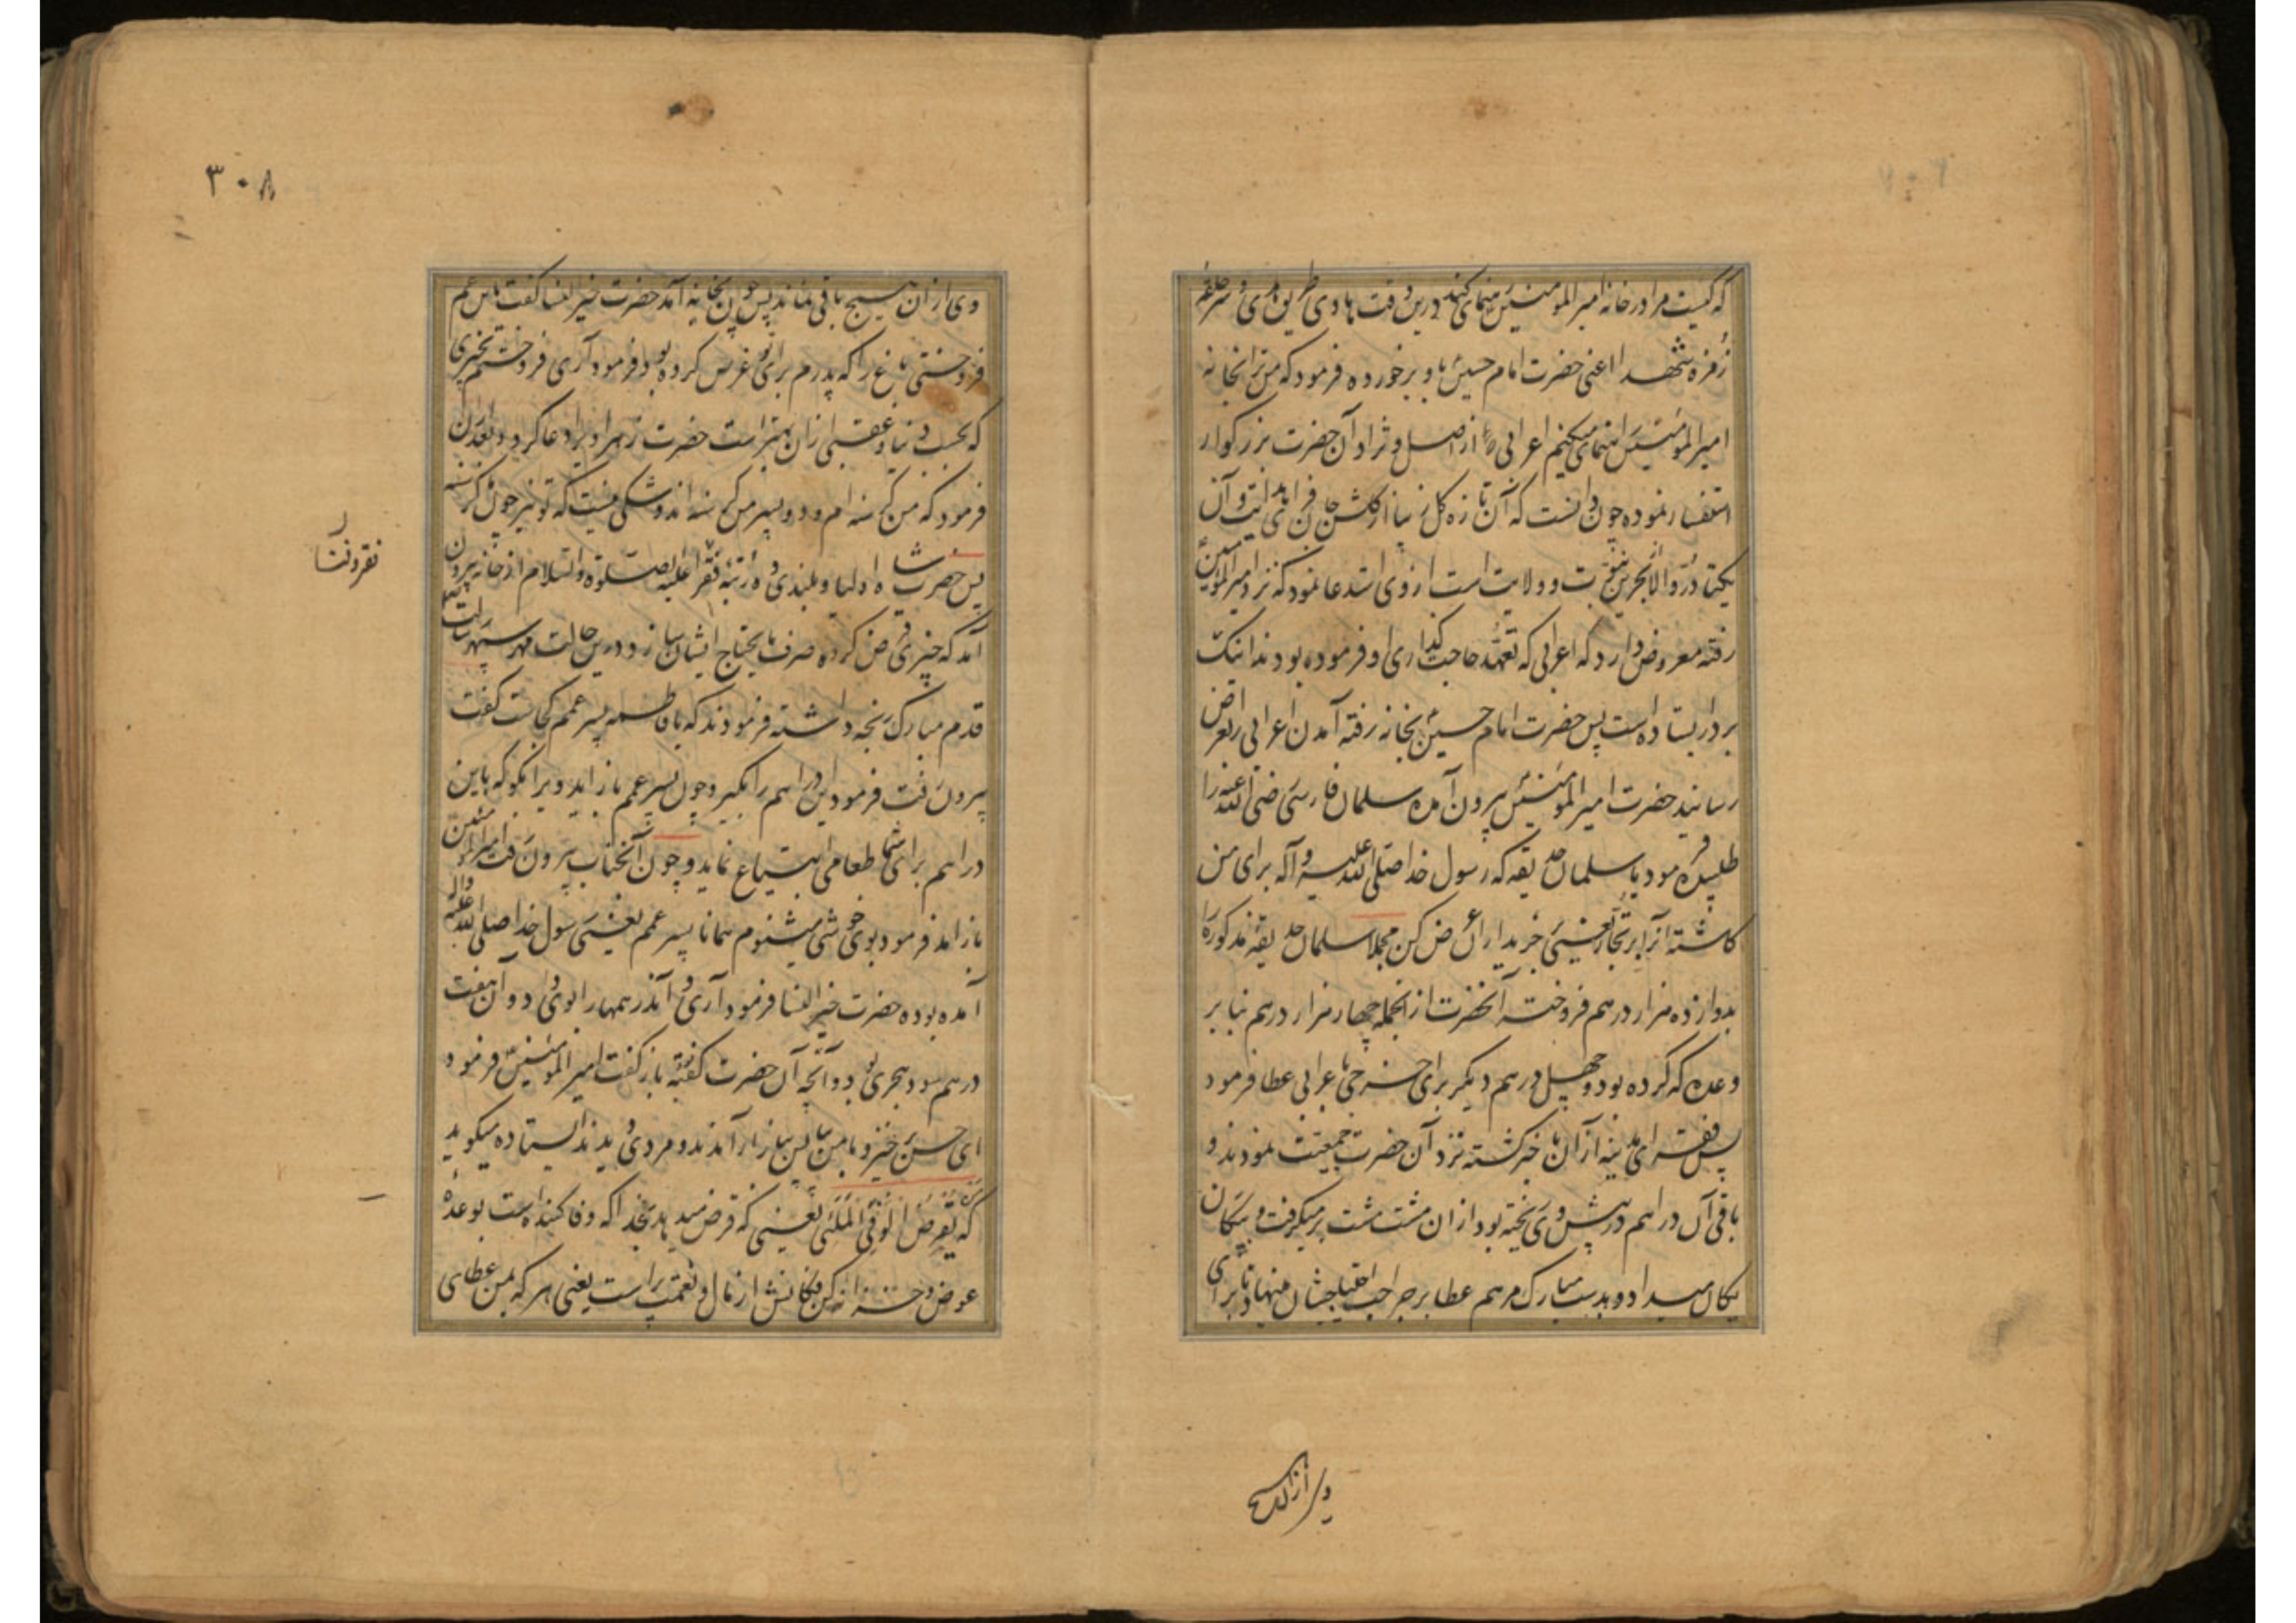 که کیست مرا در خانه امیر المومنین رهنمای کند درین وقت هادی طریق هدی و سر حلقه
زمره شهدا اعنی حضرت امام حسین باو برخورده فرمود که من ترا بخانه
امیر المومنین رهنمای میکنم اعرابی از اصل و نژاد آن حضرت بزرگوار
استفسار نموده چون دانست که آن تازه گل زیبا از گلشن جان فزای هدایت و آن
یکتا در والا از بحرین نبوت و ولایت است از وی استدعا نمود که نزد امیر المومنین
رفته معروض دارد که اعرابی که تعهد حاجت گذاری او فرموده بودند اینک
بر در ایستاده است پس حضرت امام حسین بخانه رفته آمدن اعرابی را بعرض
رسانید حضرت امیر المومنین بیرون آمده سلمان فارسی رضی الله عنه را
طلبیده فرمود یا سلمان حدیقه که رسول خدا صلی الله علیه و آله برای من
کاشته آنرا بر تجار یعنی خریداران عرض کن مجملا سلمان حدیقه مذکوره را
بدوازده هزار درهم فروخته آنحضرت از انجمله چهار هزار درهم بنابر
وعده که کرده بود و چهل درهم دیگر برای خرجی باعرابی عطا فرمود
پس فقرای مدینه از آن باخبر گشته نزد آن حضرت جمعیت نمودند و
باقی آن دراهم در پیش وی ریخته بود ازان مشت مشت بر میگرفت و بیکان
یکان میداد و بدست مبارک مرهم عطا بر جراحت احتیاجشان مینهاد تا برای
وی ازان هیچ
۳۰۸
وی ازان هیچ باقی نماند پس چون بخانه آمد حضرت خیر النسا گفت یا بن عم
فروختی باغ را که پدرم برای تو غرس کرده بود فرمود آری فروختم بخیری
که بحسب دنیا و عقبی ازان بهتر است حضرت زهرا ویرا دعا کرد و بعد ازان
فرمود که من گرسنه ام و دو پسر من گرسنه اند و شکی نیست که تو نیز چون ما گرسنه
پس حضرت شاه اولیا و بلندی ده رتبه فقرا علیه الصلوة والسلام از خانه بیرون
آمد که چیزی قرض کرده صرف مایحتاج ایشان سازد درین حالت مهر سپهر رسالت
قدم مبارک رنجه داشته فرمودند که یا فاطمه پسر عمم کجاست گفت
بیرون رفت فرمود این دراهم را بگیر و چون پسر عمم باز آید ویرا بگو که باین
دراهم برای شما طعامی ابتیاع نماید و چون آنجناب بیرون رفت امیر المومنین
باز آمد فرمود بوی خوشی میشنوم همانا پسر عمم یعنی رسول خدا صلی الله علیه واله
آمده بوده حضرت خیر النسا فرمود آری و آن درهمها را بوی داد و آن هفت
درهم سود هجری بود و آنچه آن حضرت گفته باز گفت امیر المومنین فرمود
ای حسن خیز و با من بیا پس ببازار آمدند و مردی دیدند ایستاده میگوید
که من یقرض الوفی الملی یعنی که قرض میدهد بخدا که وفا کننده است بوعده
عوض و خزانه کن فکانش از مال و نعمت پر است یعنی هر که بمن عطای